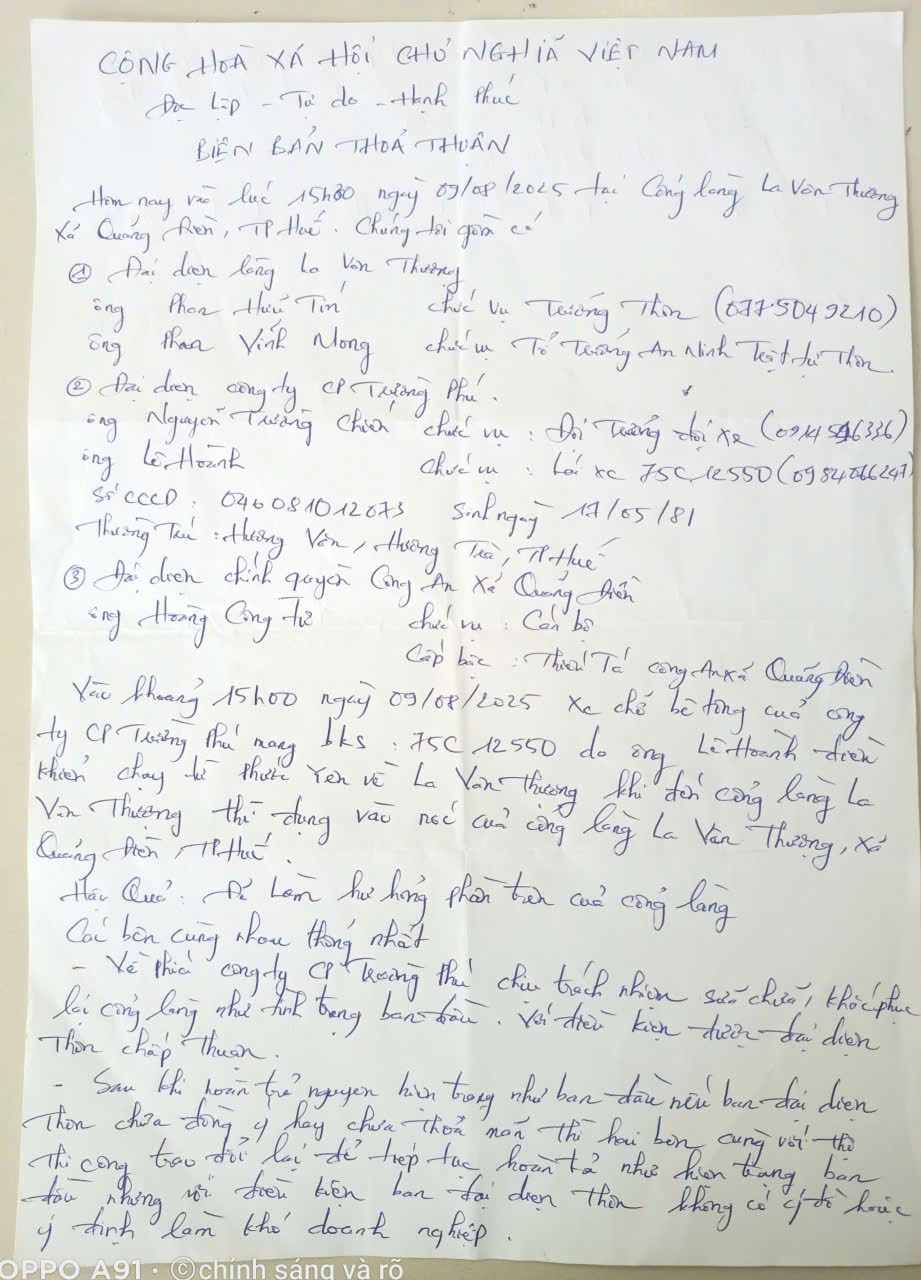 CỘNG HOÀ XÃ HỘI CHỦ NGHĨA VIỆT NAM
Độc Lập - Tự do - Hạnh Phúc
BIÊN BẢN THOẢ THUẬN
Hôm nay vào lúc 15h30 ngày 09/08/2025 tại Cổng làng La Vân Thượng
Xã Quảng Điền, TP Huế. Chúng tôi gồm có
① Đại diện làng La Vân Thượng
ông Phan Hữu Tín chức vụ Trưởng Thôn (0775049210)
ông Phan Vĩnh Mong chức vụ Tổ Trưởng An Ninh Trật tự Thôn.
② Đại diện công ty CP Trường Phú.
ông Nguyễn Trường Chiến chức vụ : Đội Trưởng đội xe
ông Lê Hoành chức vụ : Lái xe 75C 12550 (0984066247)
Số CCCD : 046081012073 Sinh ngày 17/05/81
Thường Trú : Hương Vân, Hương Trà, TP Huế
③ Đại diện chính quyền Công An Xã Quảng Điền
ông Hoàng Công Tư chức vụ : Cán bộ
Cấp bậc : Thiếu Tá công An xã Quảng Điền
Vào khoảng 15h00 ngày 09/08/2025 xe chở bê tông của công
ty CP Trường Phú mang bks : 75C 12550 do ông Lê Hoành điều
khiển chạy từ Phước Yên về La Vân Thượng khi đến cổng làng La
Vân Thượng thì đụng vào nóc của cổng làng La Vân Thượng, xã
Quảng Điền, TP Huế.
Hậu Quả : Đã Làm hư hỏng phần trên của cổng làng
Các bên cùng nhau thống nhất
- Về phía công ty CP Trường Phú chịu trách nhiệm sửa chữa, khắc phục
lại cổng làng như tình trạng ban đầu. Với điều kiện được đại diện
Thôn chấp thuận.
- Sau khi hoàn trả nguyên hiện trạng như ban đầu nếu ban đại diện
Thôn chưa đồng ý hay chưa thoả mãn thì hai bên cùng với thợ
thi công trao đổi lại để tiếp tục hoàn trả như hiện trạng ban
đầu nhưng với điều kiện ban đại diện thôn không có ý đồ hoặc
ý định làm khó doanh nghiệp.
OPPO A91 · ©chỉnh sáng và rõ